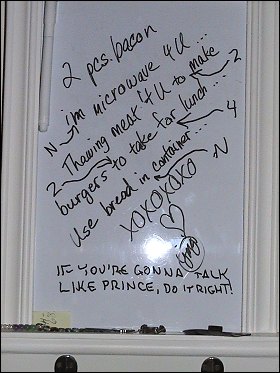 2 pcs. bacon
N i'm microwave 4 U...
2 Thawing meat 4 U to make 2
burgers to take for lunch... 4
Use bread in container... N
XOXOXOXO
IF YOU'RE GONNA TALK
LIKE PRINCE, DO IT RIGHT!